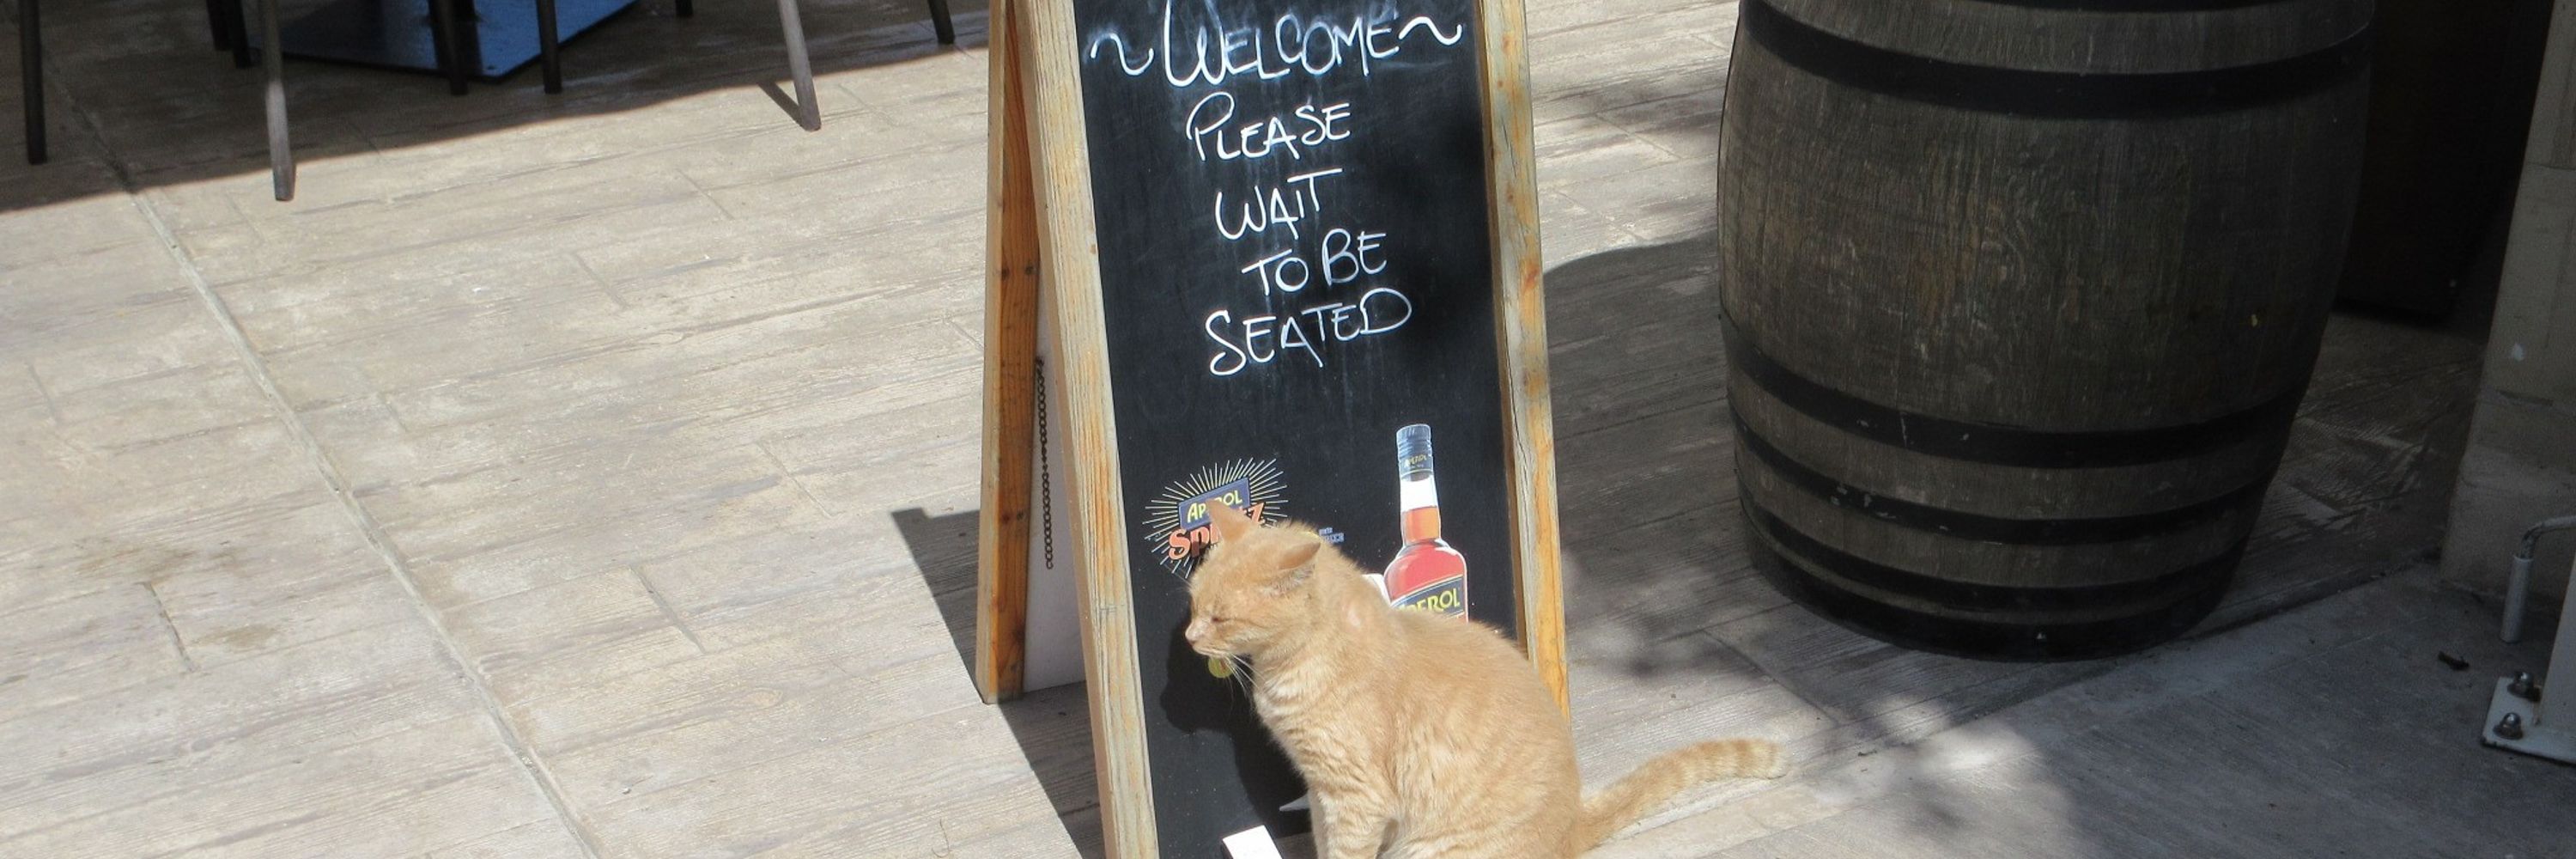 ~WELCOME~
PLEASE
WAIT
TO BE
SEATED
APEROL
APEROL